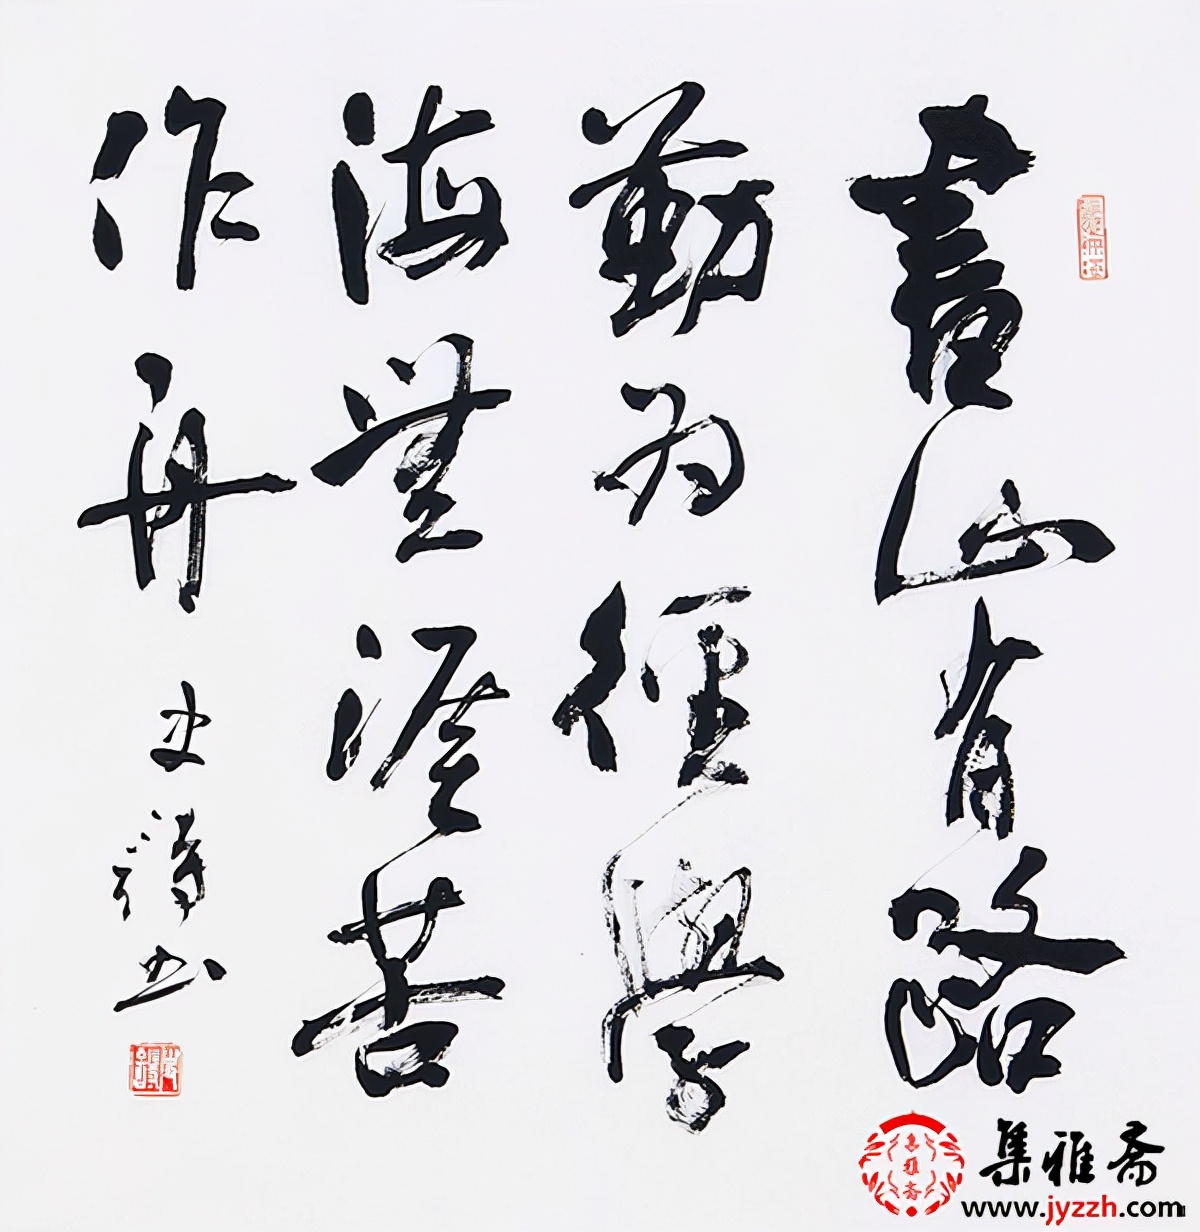 書山有路
勤为徑學
海無涯苦
作舟
书
集雅斋
www.jyzzh.com